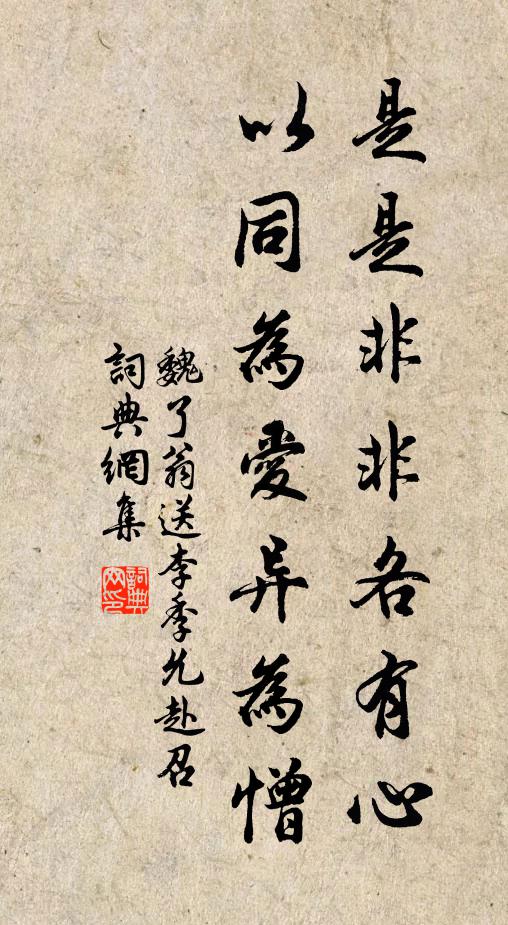 是是非非各有心
以同為愛异為憎
魏了翁送李季允赴召
詞典網集
詞典網印